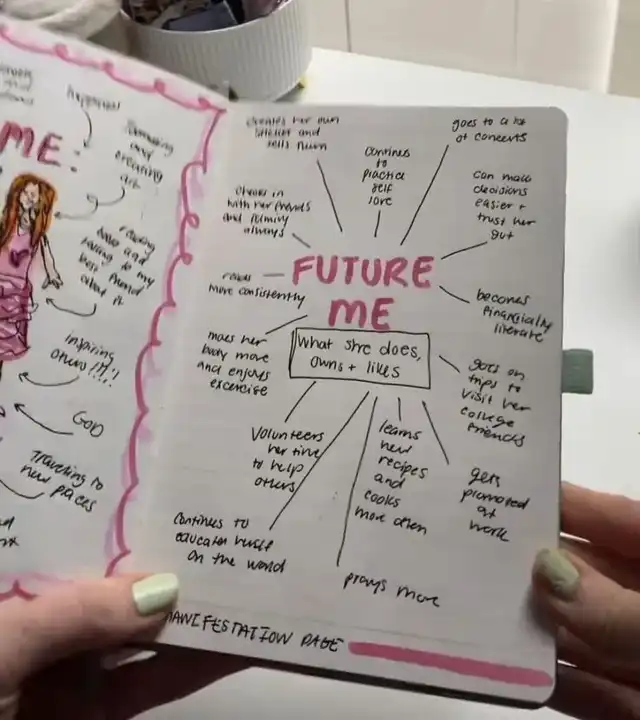 happiness
ME:
Journaling
and
creating
art
to my
best friend
about it
inspiring
others!!!!!
GOD
Traveling to
new places
creates her own
and
tells them
continues
to
practice
self
love
goes to a lot
of concerts
checks in
with her friends
and family
always
can make
decisions
easier +
trust her
gut
FUTURE
ME
What she does,
owns + likes
reads
more consistently
becomes
financially
literate
moves her
body more
and enjoys
excercise
goes on
trips to
visit her
college
friends
Volunteers
her time
to help
others
learns
new
recipes
and
cooks
more often
gets
promoted
at
work
continues to
educate herself
on the world
prays more
MANIFESTATION PAGE